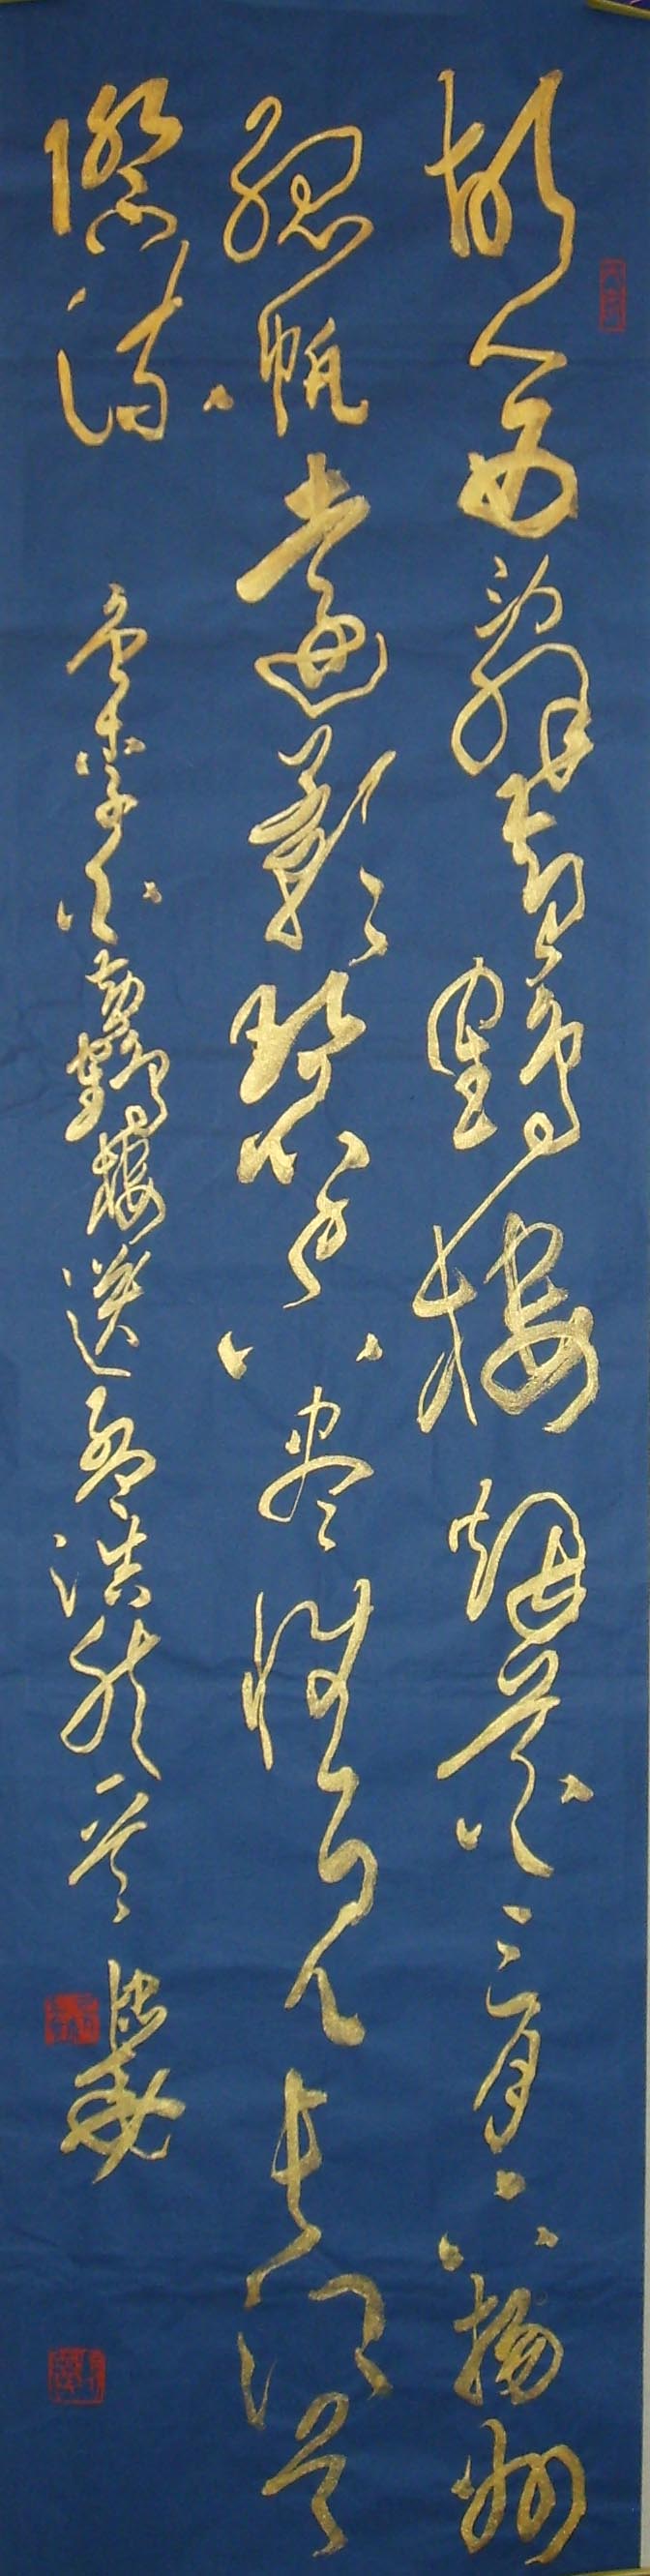 故人西辭黃鶴樓煙花三月下揚州
孤帆遠影碧空盡惟見長江天
際流 錄李白黃鶴樓送孟浩然一首